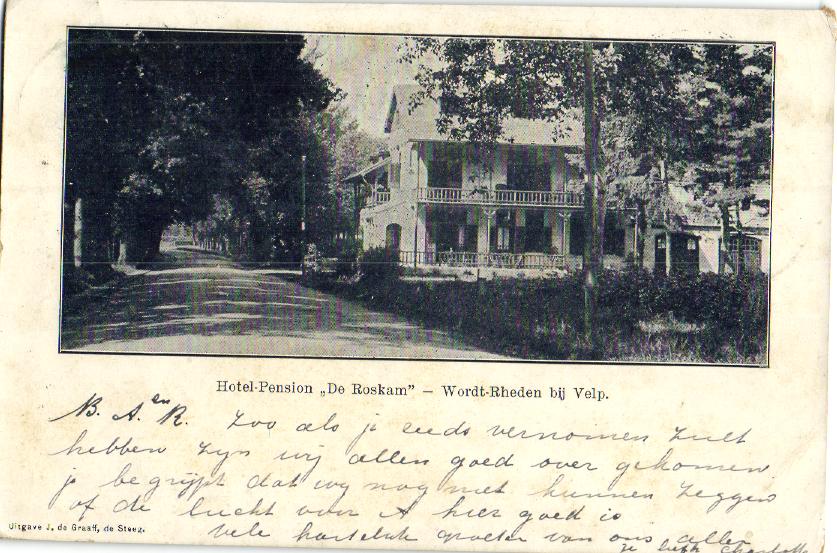 Hotel-Pension „De Roskam" – Wordt-Rheden bij Velp.
B. A. en R. Zoo als je reeds vernomen zult
hebben zijn wij allen goed over gekomen
je begrijpt dat wij nog niet kunnen zeggen
of de lucht voor A hier goed is
vele hartelijke groeten van ons allen
je liefh
Uitgave J. de Graaff, de Steeg.